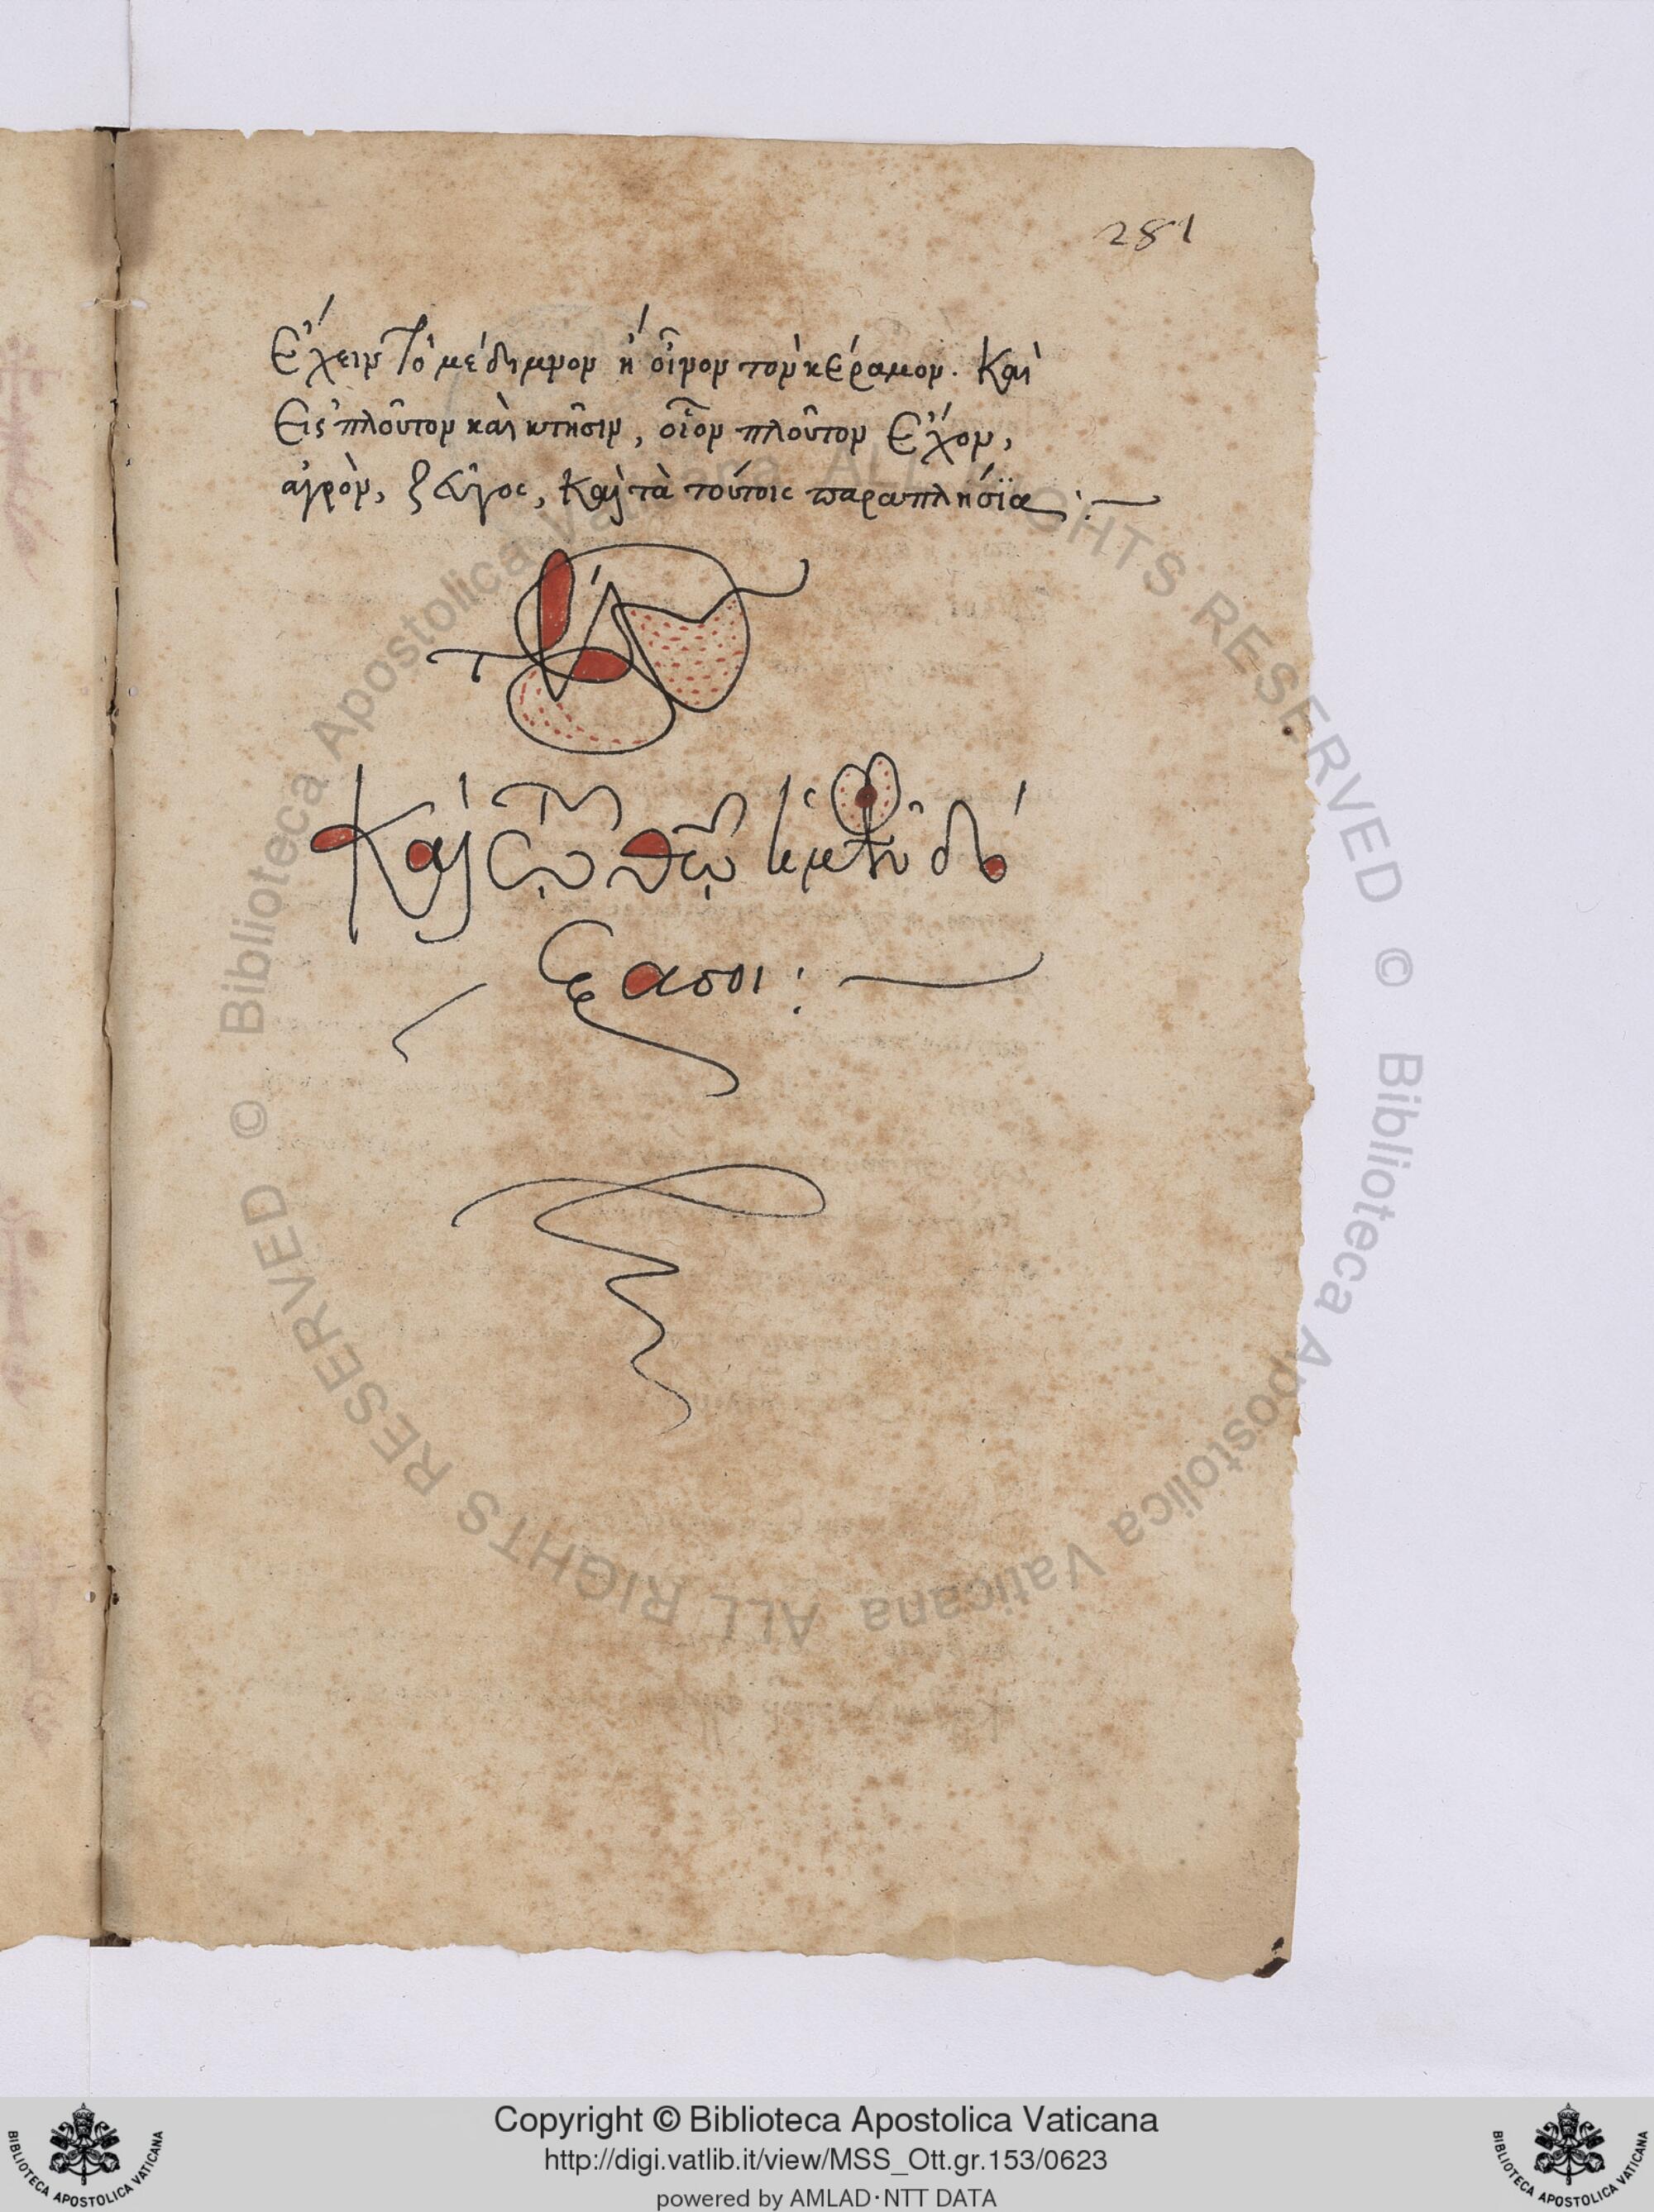 281
Ἔχειν τὸ μέδιμνον ἢ οἶνον τὸν κέραμον. Καὶ
Εἰς πλοῦτον καὶ κτῆσιν, οἷον πλοῦτον Ἔχον,
ἀγρὸν, ζεῦγος, Καὶ τὰ τούτοις παραπλήσϊα :—
Καὶ
Copyright © Biblioteca Apostolica Vaticana
http://digi.vatlib.it/view/MSS_Ott.gr.153/0623
powered by AMLAD·NTT DATA
© Biblioteca Apostolica Vaticana ALL RIGHTS RESERVED © Biblioteca Apostolica Vaticana ALL RIGHTS RESERVED
BIBLIOTECA APOSTOLICA VATICANA
BIBLIOTECA APOSTOLICA VATICANA